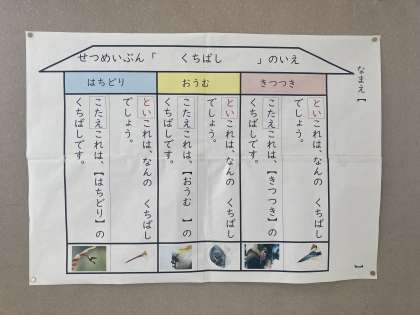 なまえ【　　　】
せつめいぶん「　くちばし　」のいえ
きつつき
とい これは、なんの　くちばし
でしょう。
こたえ これは、【きつつき】の
くちばしです。
おうむ
とい これは、なんの　くちばし
でしょう。
こたえ これは、【おうむ　】の
くちばしです。
はちどり
とい これは、なんの　くちばし
でしょう。
こたえ これは、【はちどり】の
くちばしです。